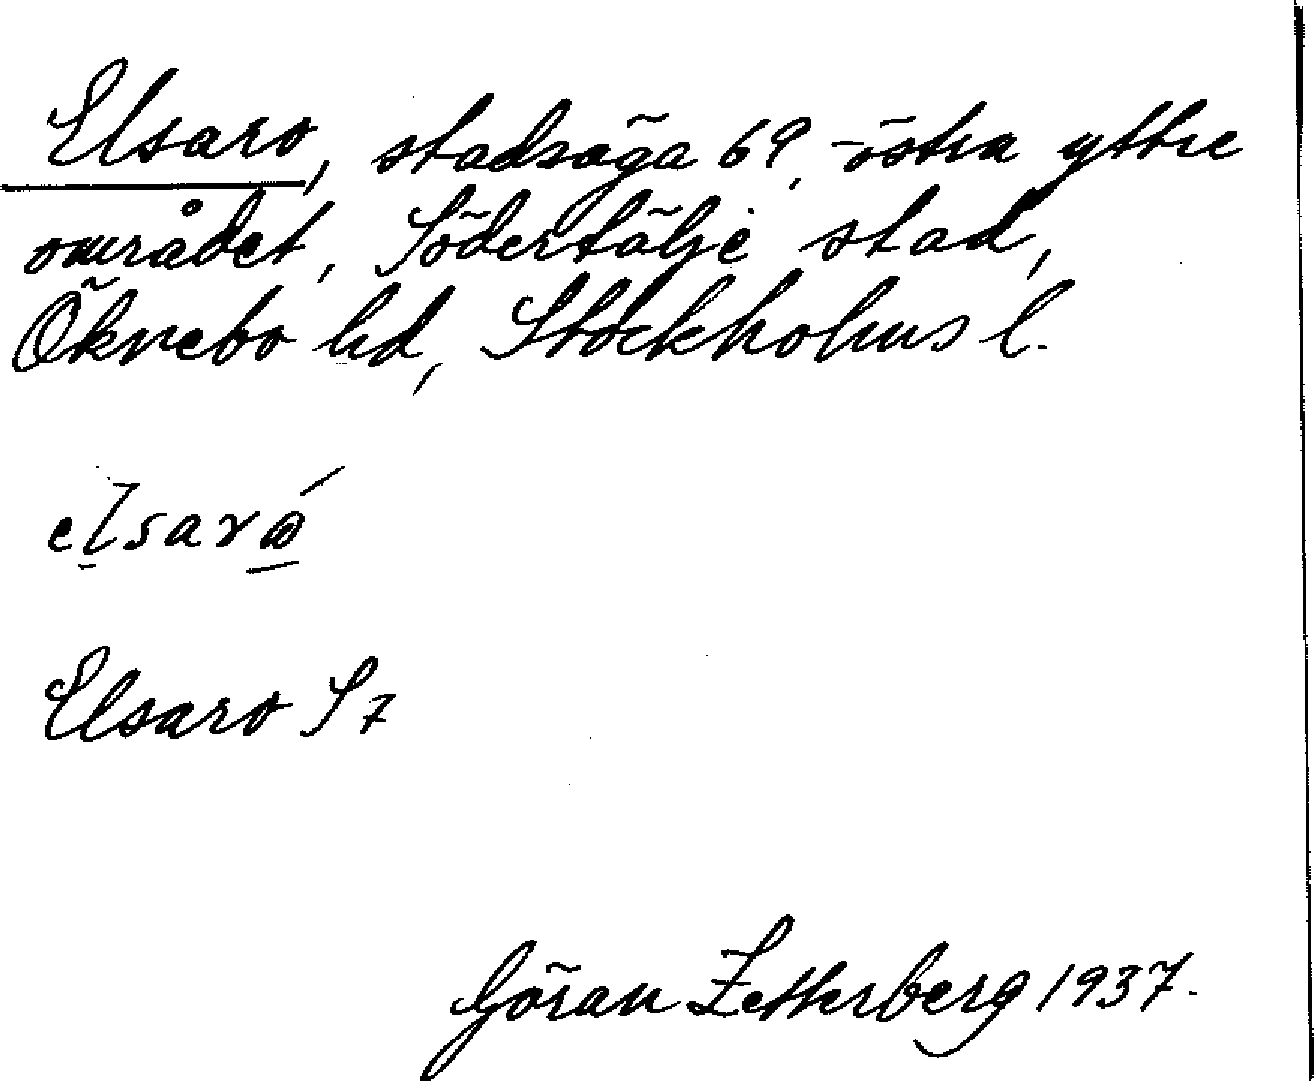 Elsaro, stadsäga 69, östra yttre
området, Södertälje stad,
Öknebo hd, Stockholms l.
elsarώ
Elsaro S7
Göran Zetterberg 1937.